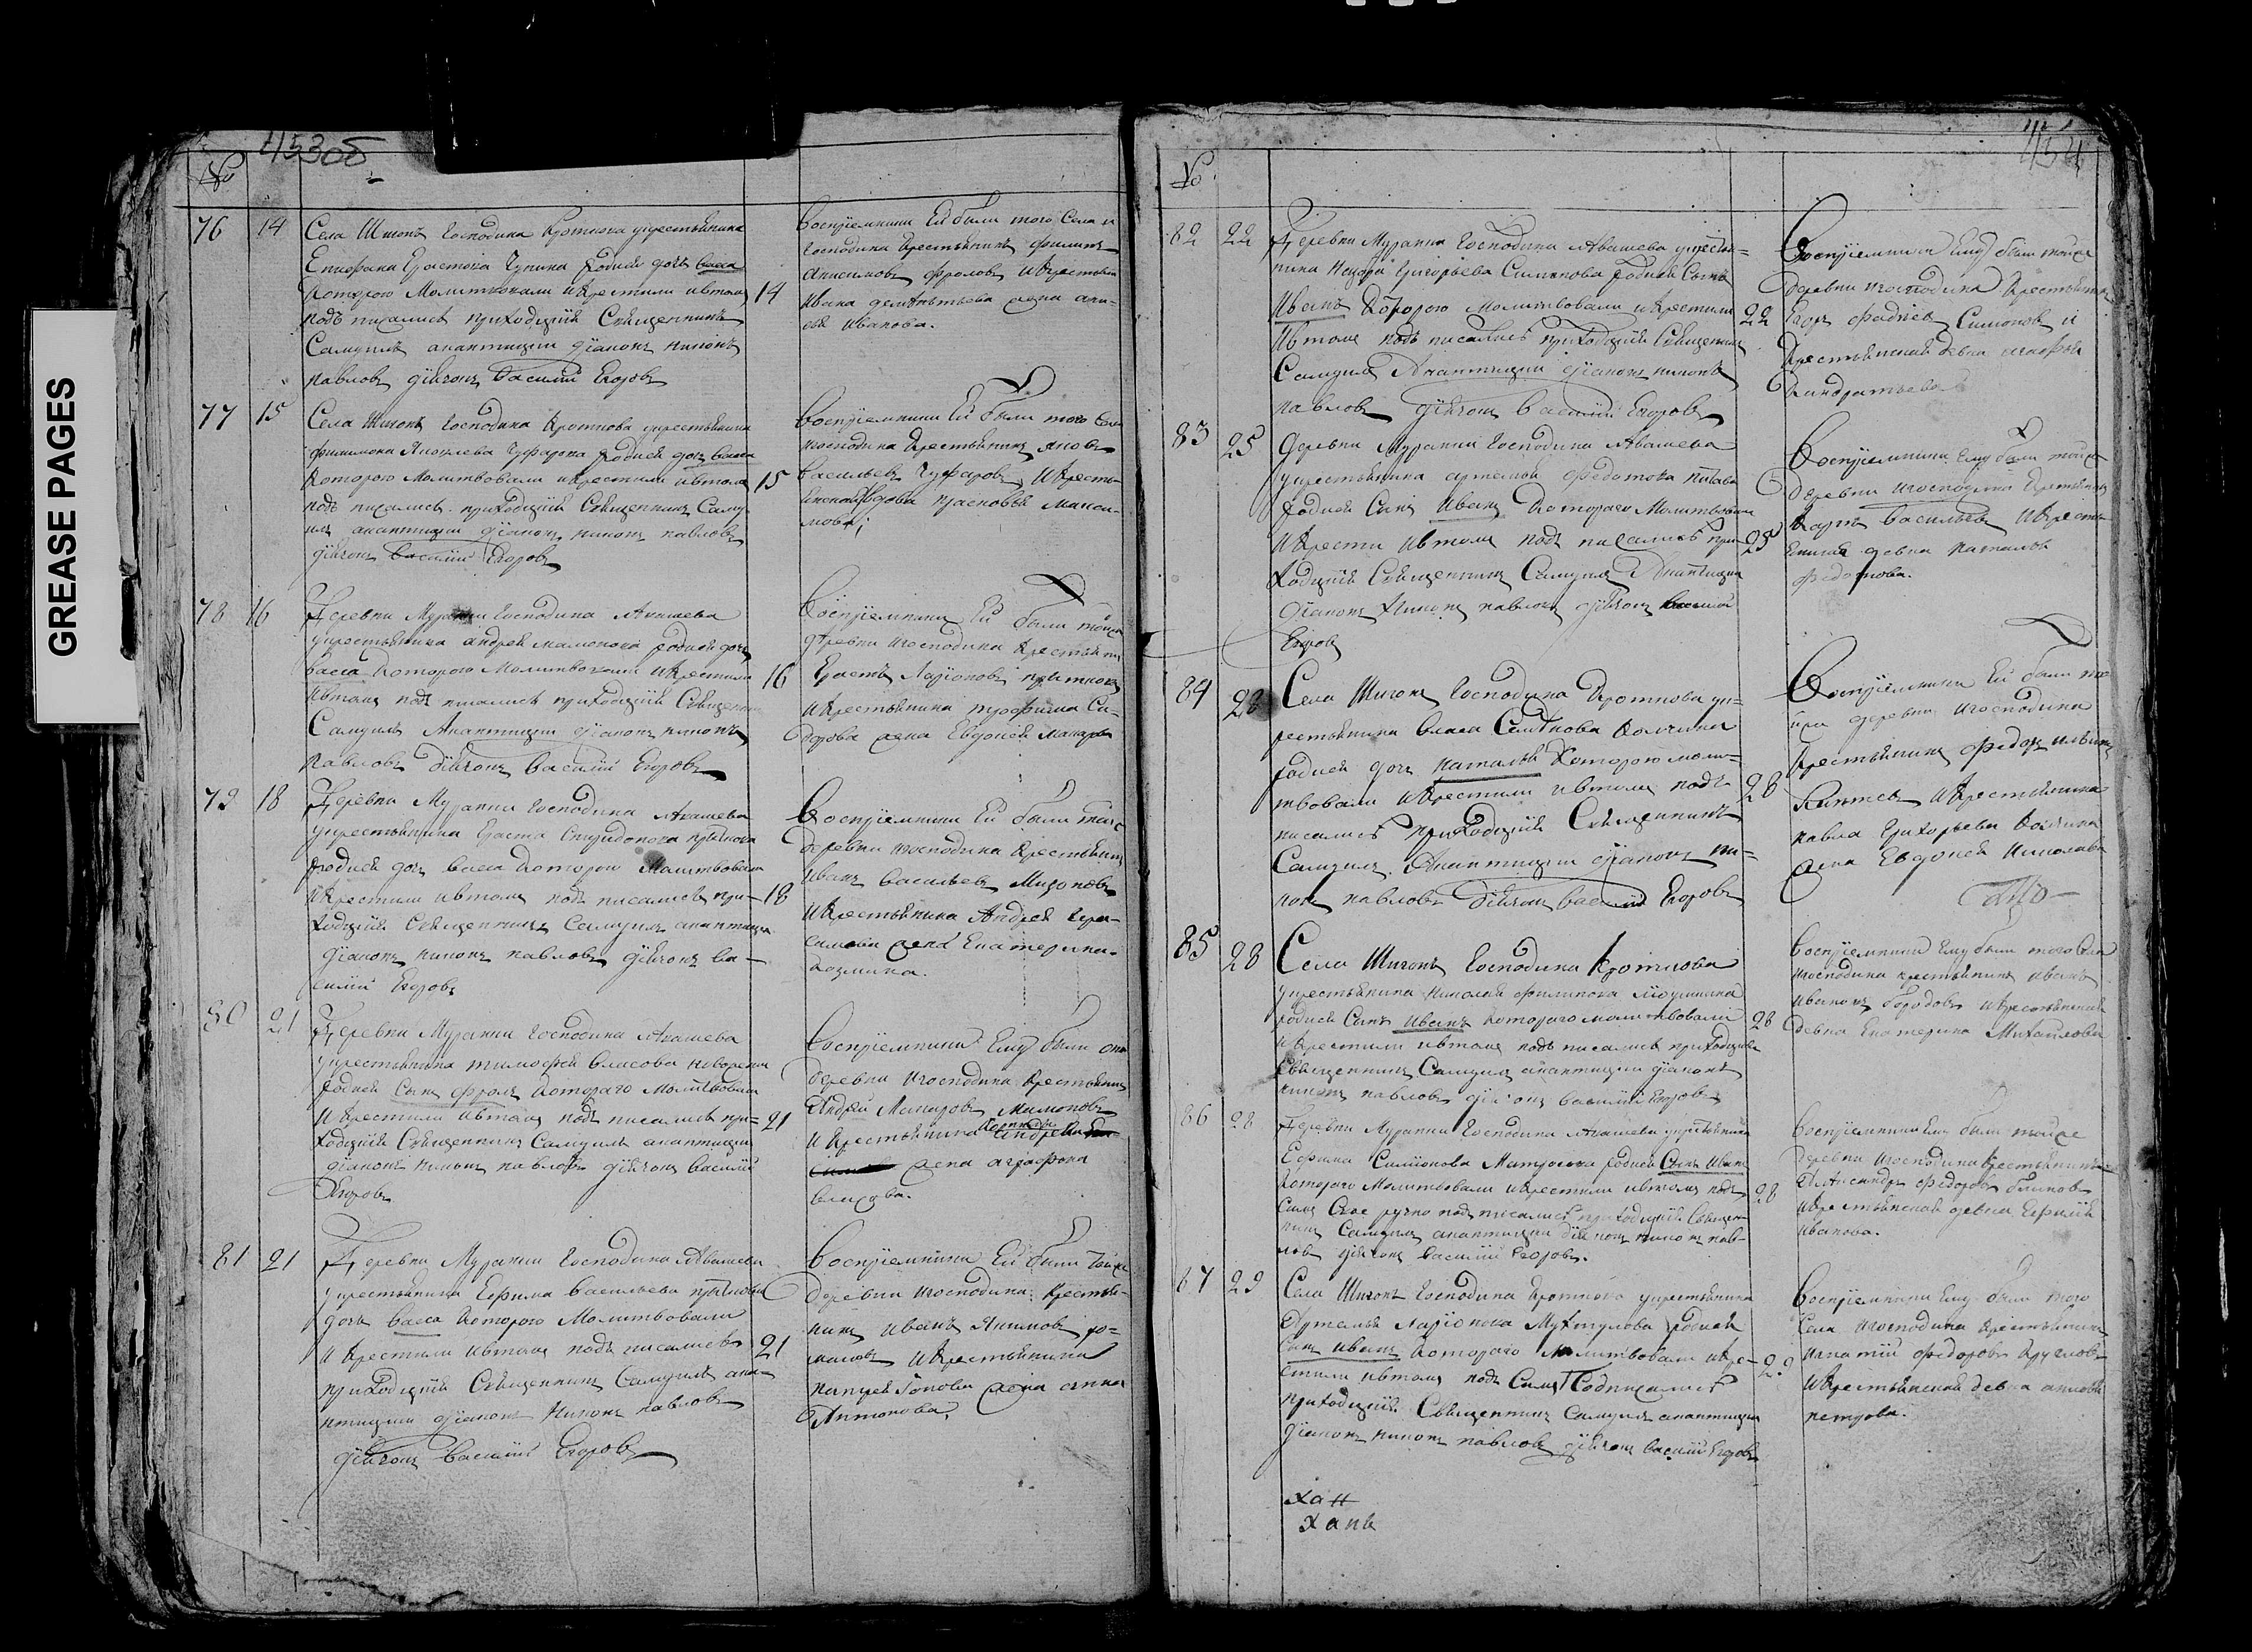 GREASE PAGES
453об
№
76 14 Села Шигонъ Господина Кроткова укрестьянина
Епифана Ерастова Чупина Родися дочь васса
Которою Молитвовали икрестили ивтомъ 14
подъ писались приходский Священникъ
Самуилъ анаптицин дiаконъ никонъ
павловъ дьячокъ василiй Егоровъ
Воспрiемники Ей были того Села и
Господина Крестьянинъ филипъ
анисимовъ фроловъ икрестьян
ивана дементьева жена
иванова.
77 15 Села Шигонъ Господина Кроткова укрестьянина
филимона Яковлева Чуфарова Родися дочь васса
Которою Молитвовали икрестили ивтомъ 15
подъ писались приходский Священникъ Саму
илъ анаптицин дiаконъ никонъ павловъ
дьячокъ василiй Егоровъ
Воспрiемники Ей были того Села
игосподина Крестьянинъ яковъ
васильевъ Чуфаровъ икресть
янская вдова прасковья макси
мова;
78 16 Деревни Муранки Господина Авашева
укрестьянина андрея мамонова родися дочь
васса Которою Молитвовали икрестили 16
ивтомъ подъ писались приходский Священни
Самуилъ Анаптицин дiаконъ никонъ
павловъ дьячокъ василiй Егоровъ
Воспрiемники Ей были тойже
деревни игосподина крестьянин
Ерастъ Ларiоновъ
икрестьянина трофима Си-
дорова жена Евдокея макарова
79 18 Деревни Муранки Господина Авашева
укрестьянина Ераста Спиридонова
родися дочь васса Которою Молитвовали
икрестили ивтомъ подъ писались при- 18
ходский Священникъ Самуилъ анаптицин
дiаконъ никонъ павловъ дьячокъ ва-
силiй Егоровъ
Воспрiемники Ей были тойже
деревни игосподина Крестьянинъ
иванъ васильевъ Мироновъ
икрестьянина Андрея гера-
симова жена Екатерина
козмина.
80 21 Деревни Муранки Господина Авашева
укрестьянина тимофея власова
родися Сынъ фролъ Котораго Молитвовали
икрестили ивтомъ подъ писались при- 21
ходский Священникъ Самуилъ анаптицин
дiаконъ никонъ павловъ дьячокъ василiй
Егоровъ
Воспрiемники Ему были оной
деревни игосподина Крестьянинъ
Андрей Макаровъ Мамоновъ
икрестьянина
жена аграфена
власова.
81 21 Деревни Муранки Господина Авашева
укрестьянина Ефима васильева
дочь васса Которою Молитвовали
икрестили ивтомъ подъ писались 21
приходский Священникъ Самуилъ ана-
птицин дiаконъ Никонъ павловъ
дьячокъ василiй Егоровъ
Воспрiемники Ей были тойже
деревни игосподина Крестья-
нинъ иванъ Якимовъ ро-
мановъ икрестьянина
жена анна
Антонова.
454
№
82 22 Деревни Муранки Господина Авашева укрестья-
нина Григорьева Симонова родися Сынъ
Иванъ Которою молитвовали икрестили 22
ивтомъ подъ писались приходский Священник
Самуилъ Анаптицин дiаконъ никонъ
павловъ дьячокъ василiй Егоровъ
Воспрiемники Ему были тойже
деревни игосподина Крестьянин
Егоръ фадеевъ Симоновъ и
крестьянская девка агафья
кондратьева
83 25 Деревни Муранки Господина Авашева
укрестьянина артемья федотова
родися Сынъ Иванъ Котораго Молитвовали
икрести ивтомъ подъ писались при- 25
ходский Священникъ Самуилъ Анаптицин
дiаконъ Никонъ павловъ дьячокъ василiй
Егоровъ
Воспрiемники Ему были тойже
деревни игосподина Крестьянинъ
карпъ васильевъ икресть
янская девка наталья
федотова.
84 28 Села Шигонъ Господина Кроткова ук-
рестьянина власа Семенова
родися дочь наталья Которою моли-
твовали икрестили ивтомъ подъ 28
писались приходский Священникъ
Самуилъ Анаптицин дiаконъ ни-
конъ павловъ дьячокъ василiй Егоровъ
Воспрiемники Ей были то
йже деревни игосподина
Крестьянинъ федоръ ильинъ
икрестьянина
павла Григорьева
жена Евдокея Николаева
85 28 Села Шигонъ Господина Кроткова
укрестьянина Николая филипова
родися Сынъ иванъ котораго молитвовали 28
икрестили ивтомъ подъ писались приходский
Священникъ Самуилъ анаптицин дiаконъ
никонъ павловъ дьячокъ василiй Егоровъ
Воспрiемники Ему были того Села
игосподина крестьянинъ иванъ
ивановъ бородовъ икрестьянская
девка Екатерина Михайлова
86 28 Деревни Муранки Господина Авашева укрестьянина
Ефима Симионова Матросова родися Сынъ иванъ
Котораго Молитвовали икрестили ивтомъ подъ 28
Симъ Свое ручно подъ писались приходский Священ
никъ Самуилъ анаптицин дiяконъ никонъ пав-
ловъ дьячокъ василiй Егоровъ.
Воспрiемники Ему были тойже
деревни игосподина Крестьянинъ
Александръ федоровъ блиновъ
икрестьянская девка Ефимiя
иванова.
87 29 Села Шигонъ Господина Кроткова укрестьянина
Артемья Ларiонова родися
Сынъ иванъ Котораго Молитвовали икре- 29
стили ивтомъ подъ Симъ Подписались
приходский Священникъ Самуилъ анаптицин
дiаконъ никонъ павловъ дьячокъ василiй Егоровъ
Воспрiемники Ему были того
Села игосподина Крестьянинъ
игнатiй федоровъ Кругловъ
икрестьянская девка
петрова.